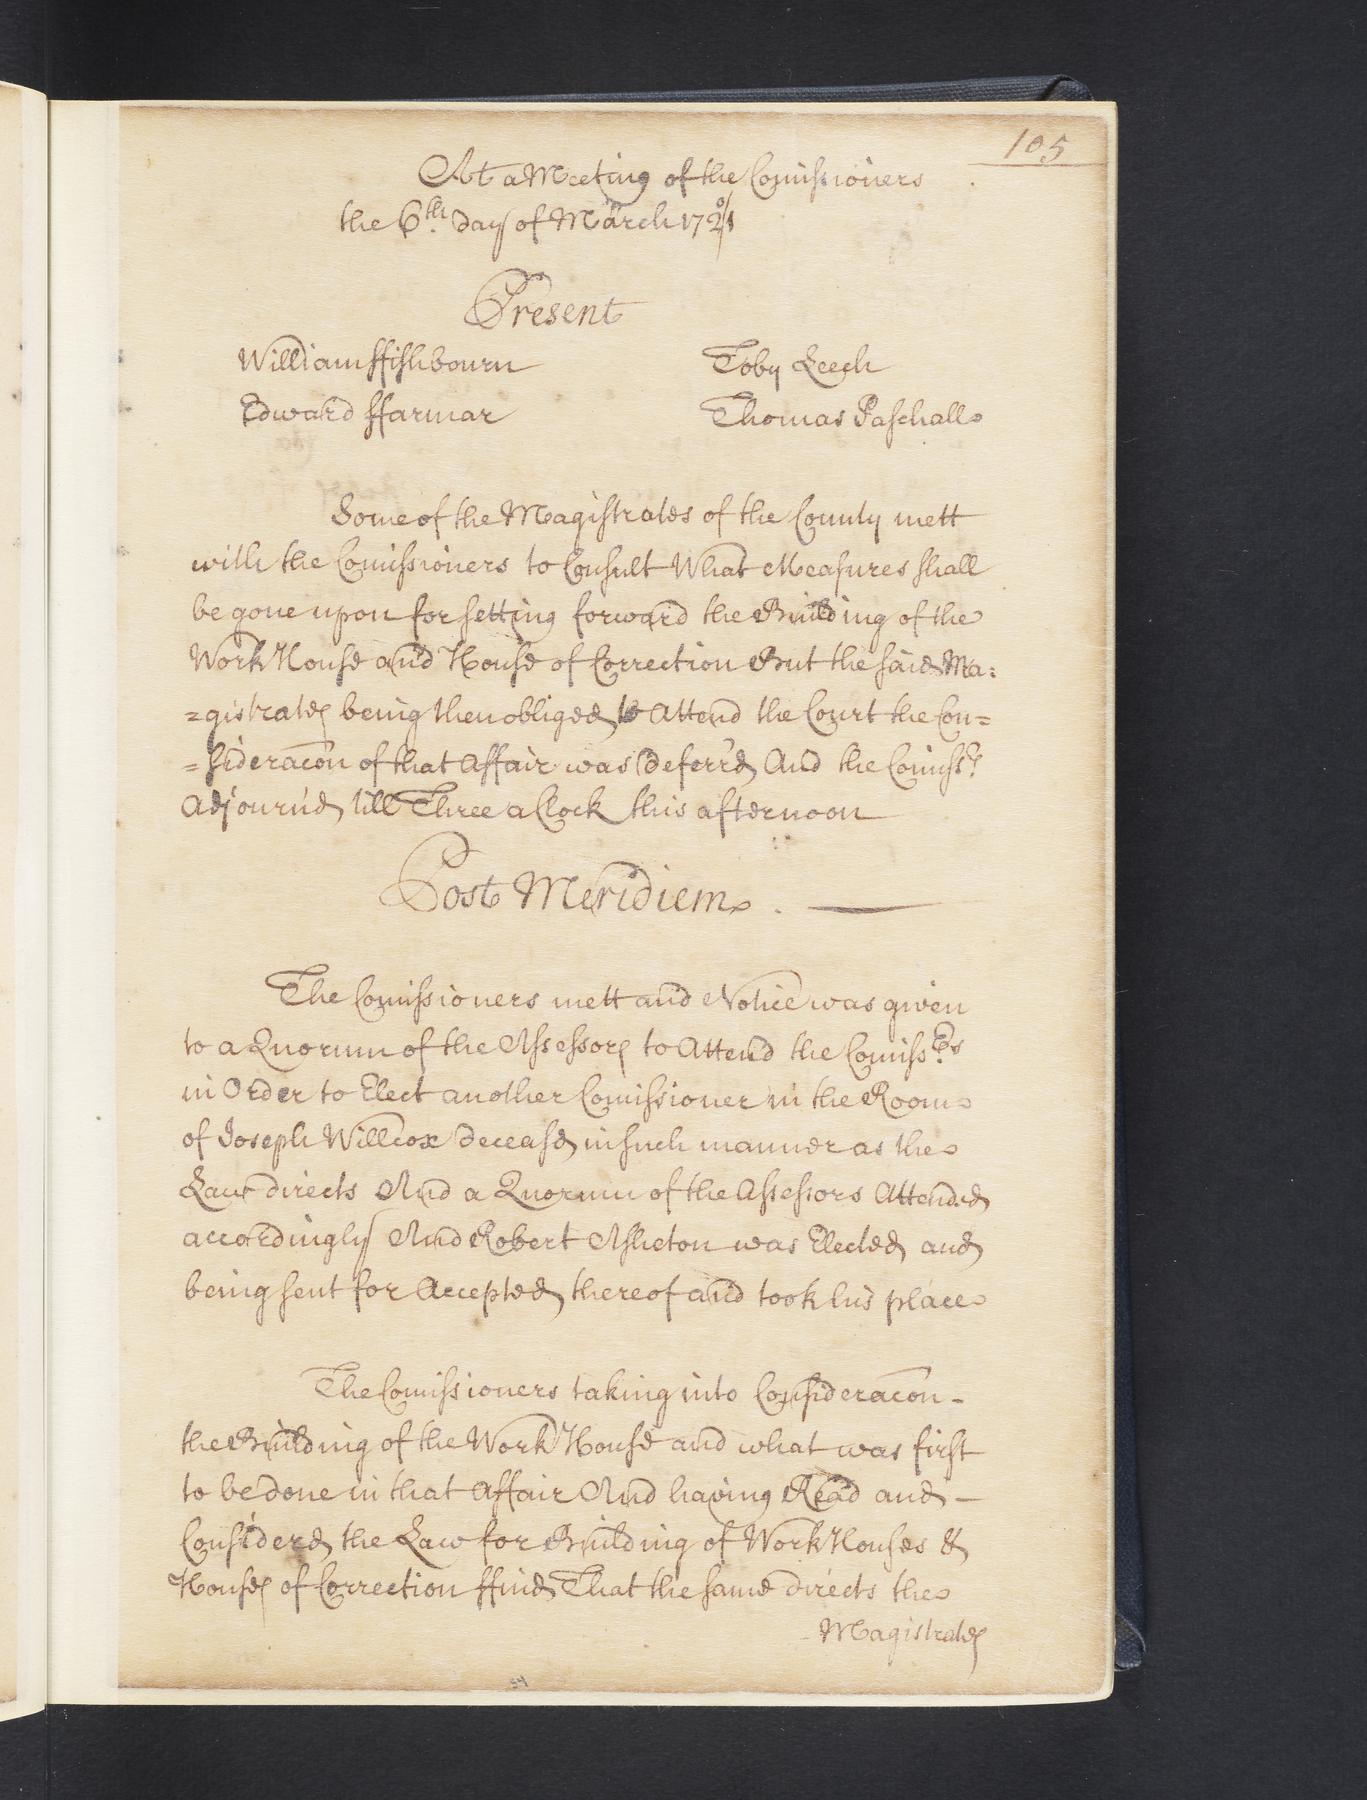 105
At a Meeting of the Comissioners
the 6th. Day of March 172 0/1
Present
William ffishbourn Toby Leech
Edward ffarmar Thomas Paschall
Some of the Magistrates of the County mett
with the Comissioners to Consult What Measures shall
be gone upon for setting forward the Building of the
Work House and House of Correction But the said Ma=
=gistrates being then obliged to Attend the Court the Con=
=sideracon of that Affair was Deferr'd And the Comissrs
Adjourn'd till Three a Clock this afternoon
Post Meridiem.
The Comissioners mett and Notice was given
to a Quorum of the Assessors to Attend the Comissrs
in Order to Elect another Comissioner in the Room
of Joseph Willcox Deceased in such manner as the
Law directs And a Quorum of the Assessors Attended
accordingly And Robert Assheton was Elected and
being sent for Accepted thereof and took his place
The Comissioners taking into Consideracon -
the Building of the Work House and what was first
to be done in that Affair And having Read and -
Considered the Law for Building of Work Houses &
Houses of Correction ffind That the same directs the
Magistrates